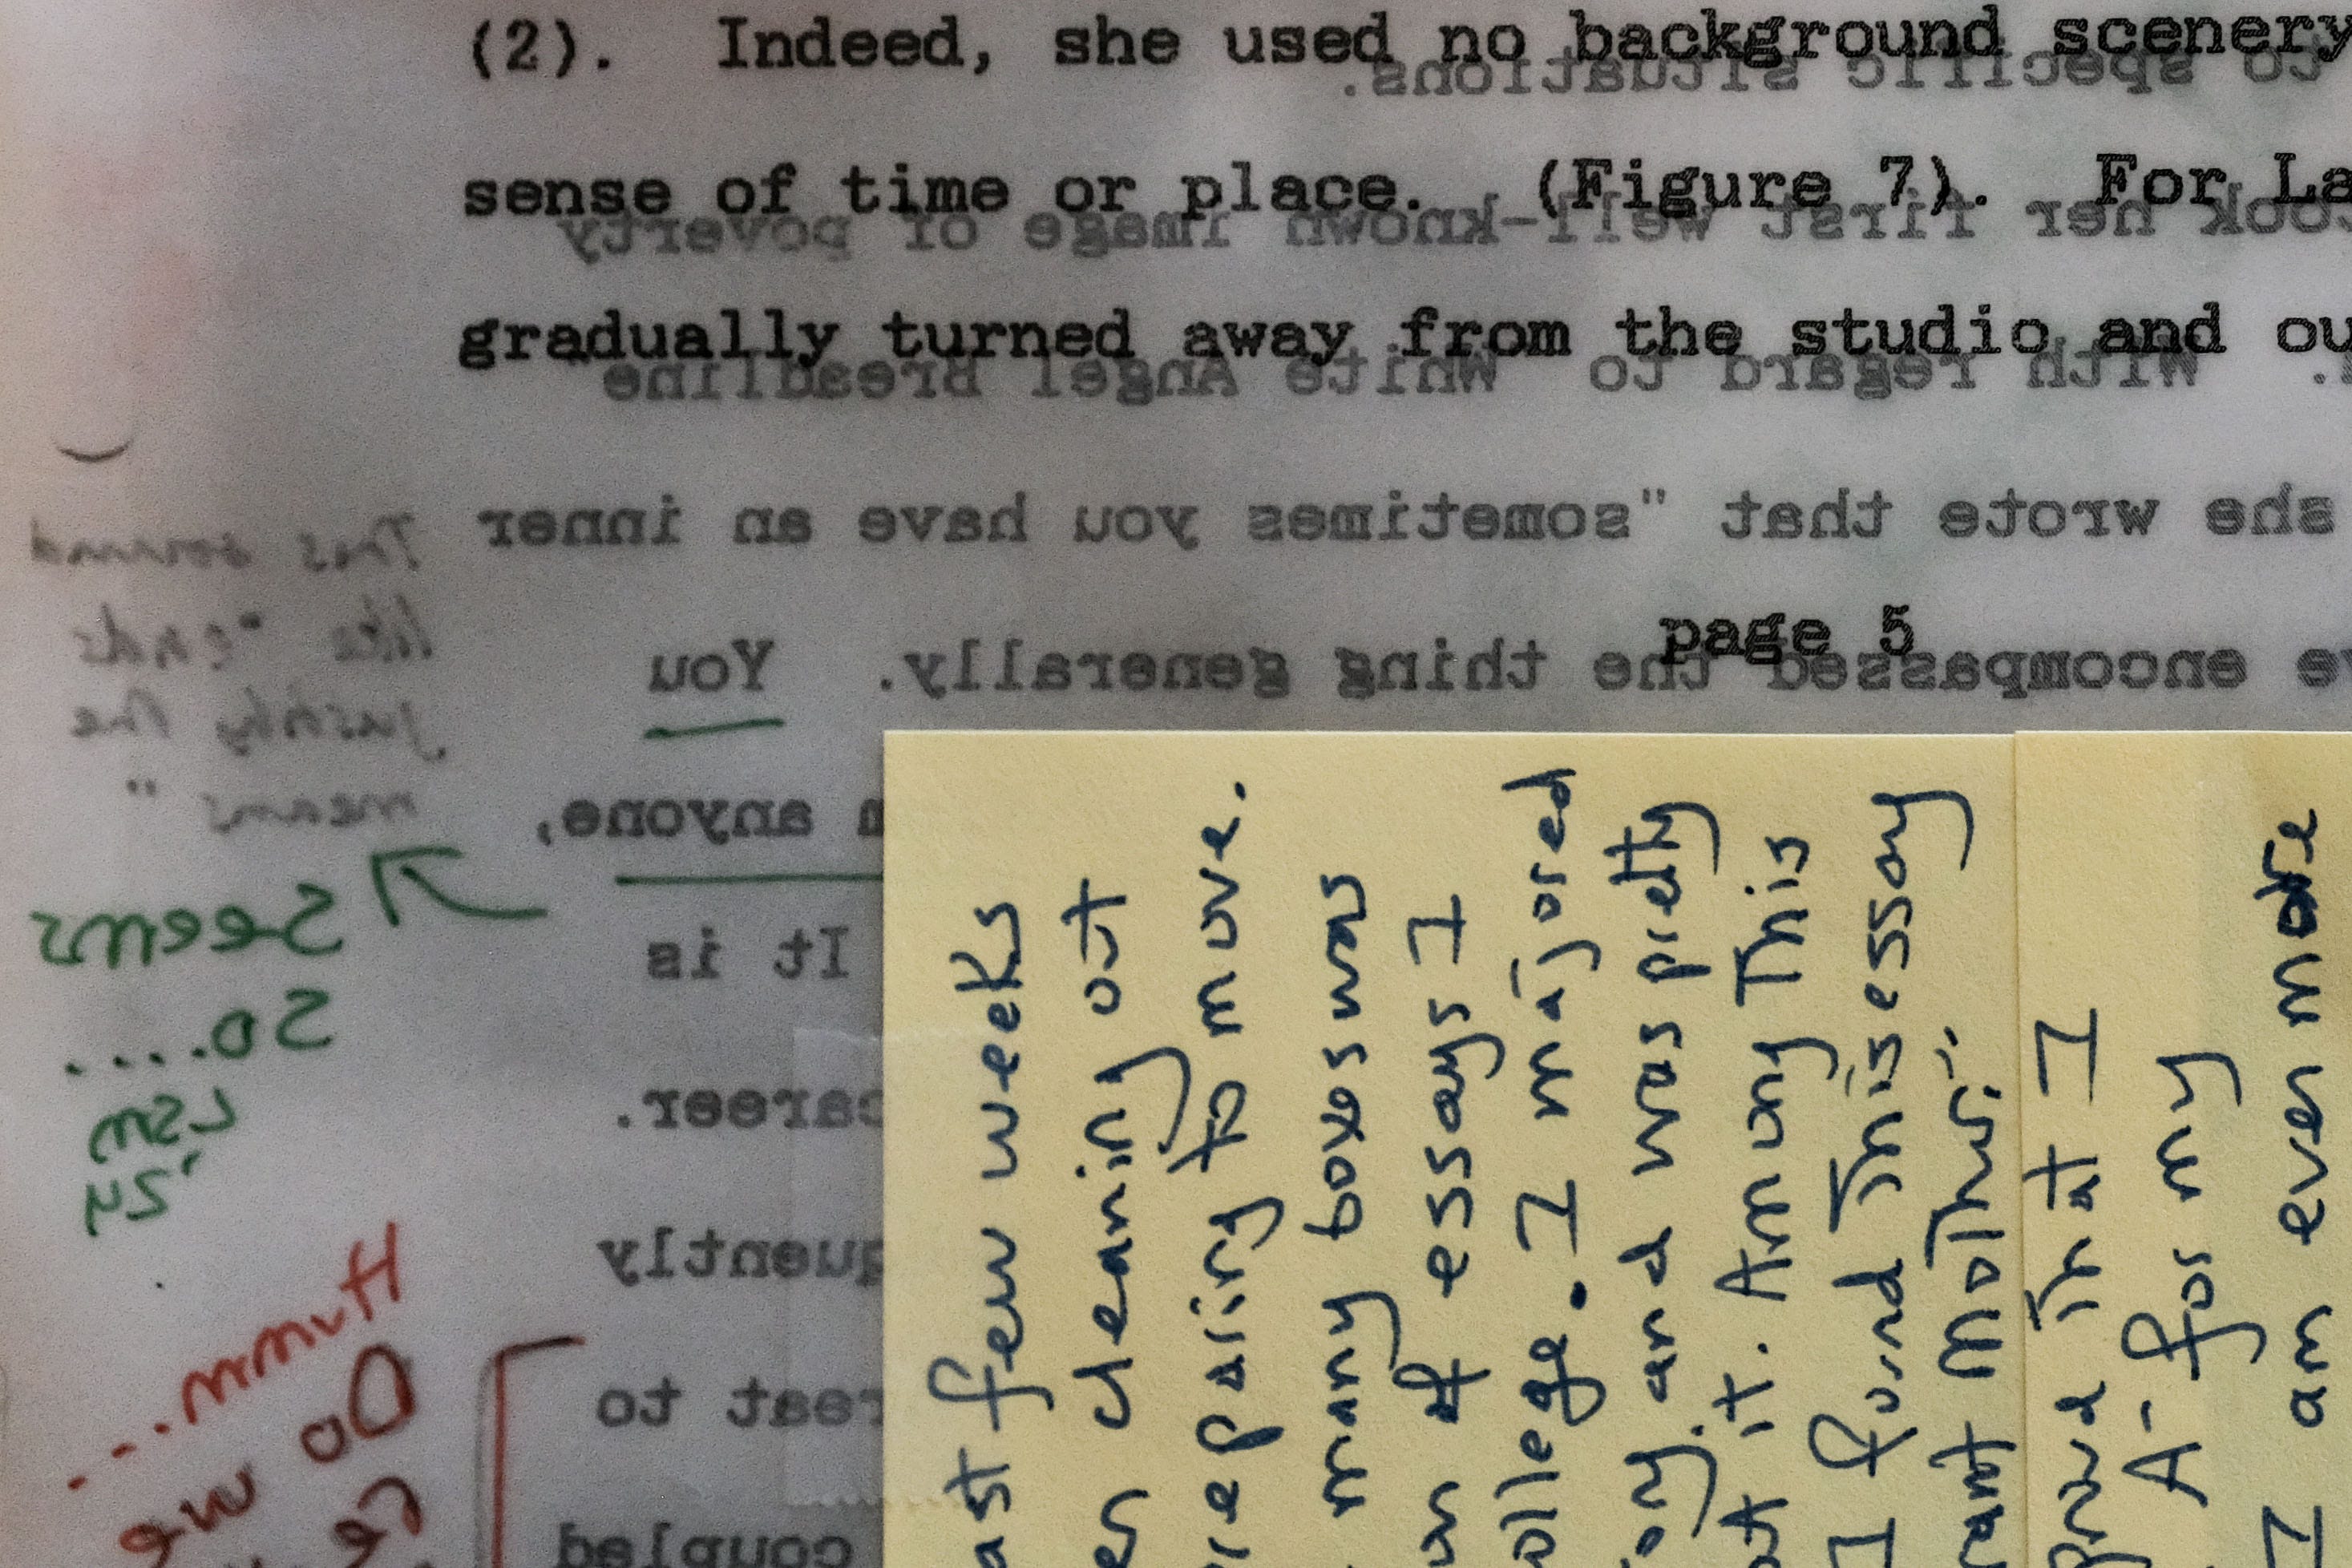 (2). Indeed, she used no background scenery
to specific situations.
sense of time or place. (Figure 7). For La
took her first well-known image of poverty
gradually turned away from the studio and ou
. With regard to White Angel Breadline
she wrote that "sometimes you have an inner
page 5
encompassed the thing generally. You
anyone,
It is
career.
quently
reat to
coupled
This sound
like "ends
justify the
means"
Seems
so....
LSM
'24
Hmmm...
Do we
ast few weeks
en cleaning out
reparing to move.
many boxes was
essays I
ollege. I majored
ory. and was pretty
at it. Among this
I found this essay
rant Mother."
proud that I
A- for my
I am even more